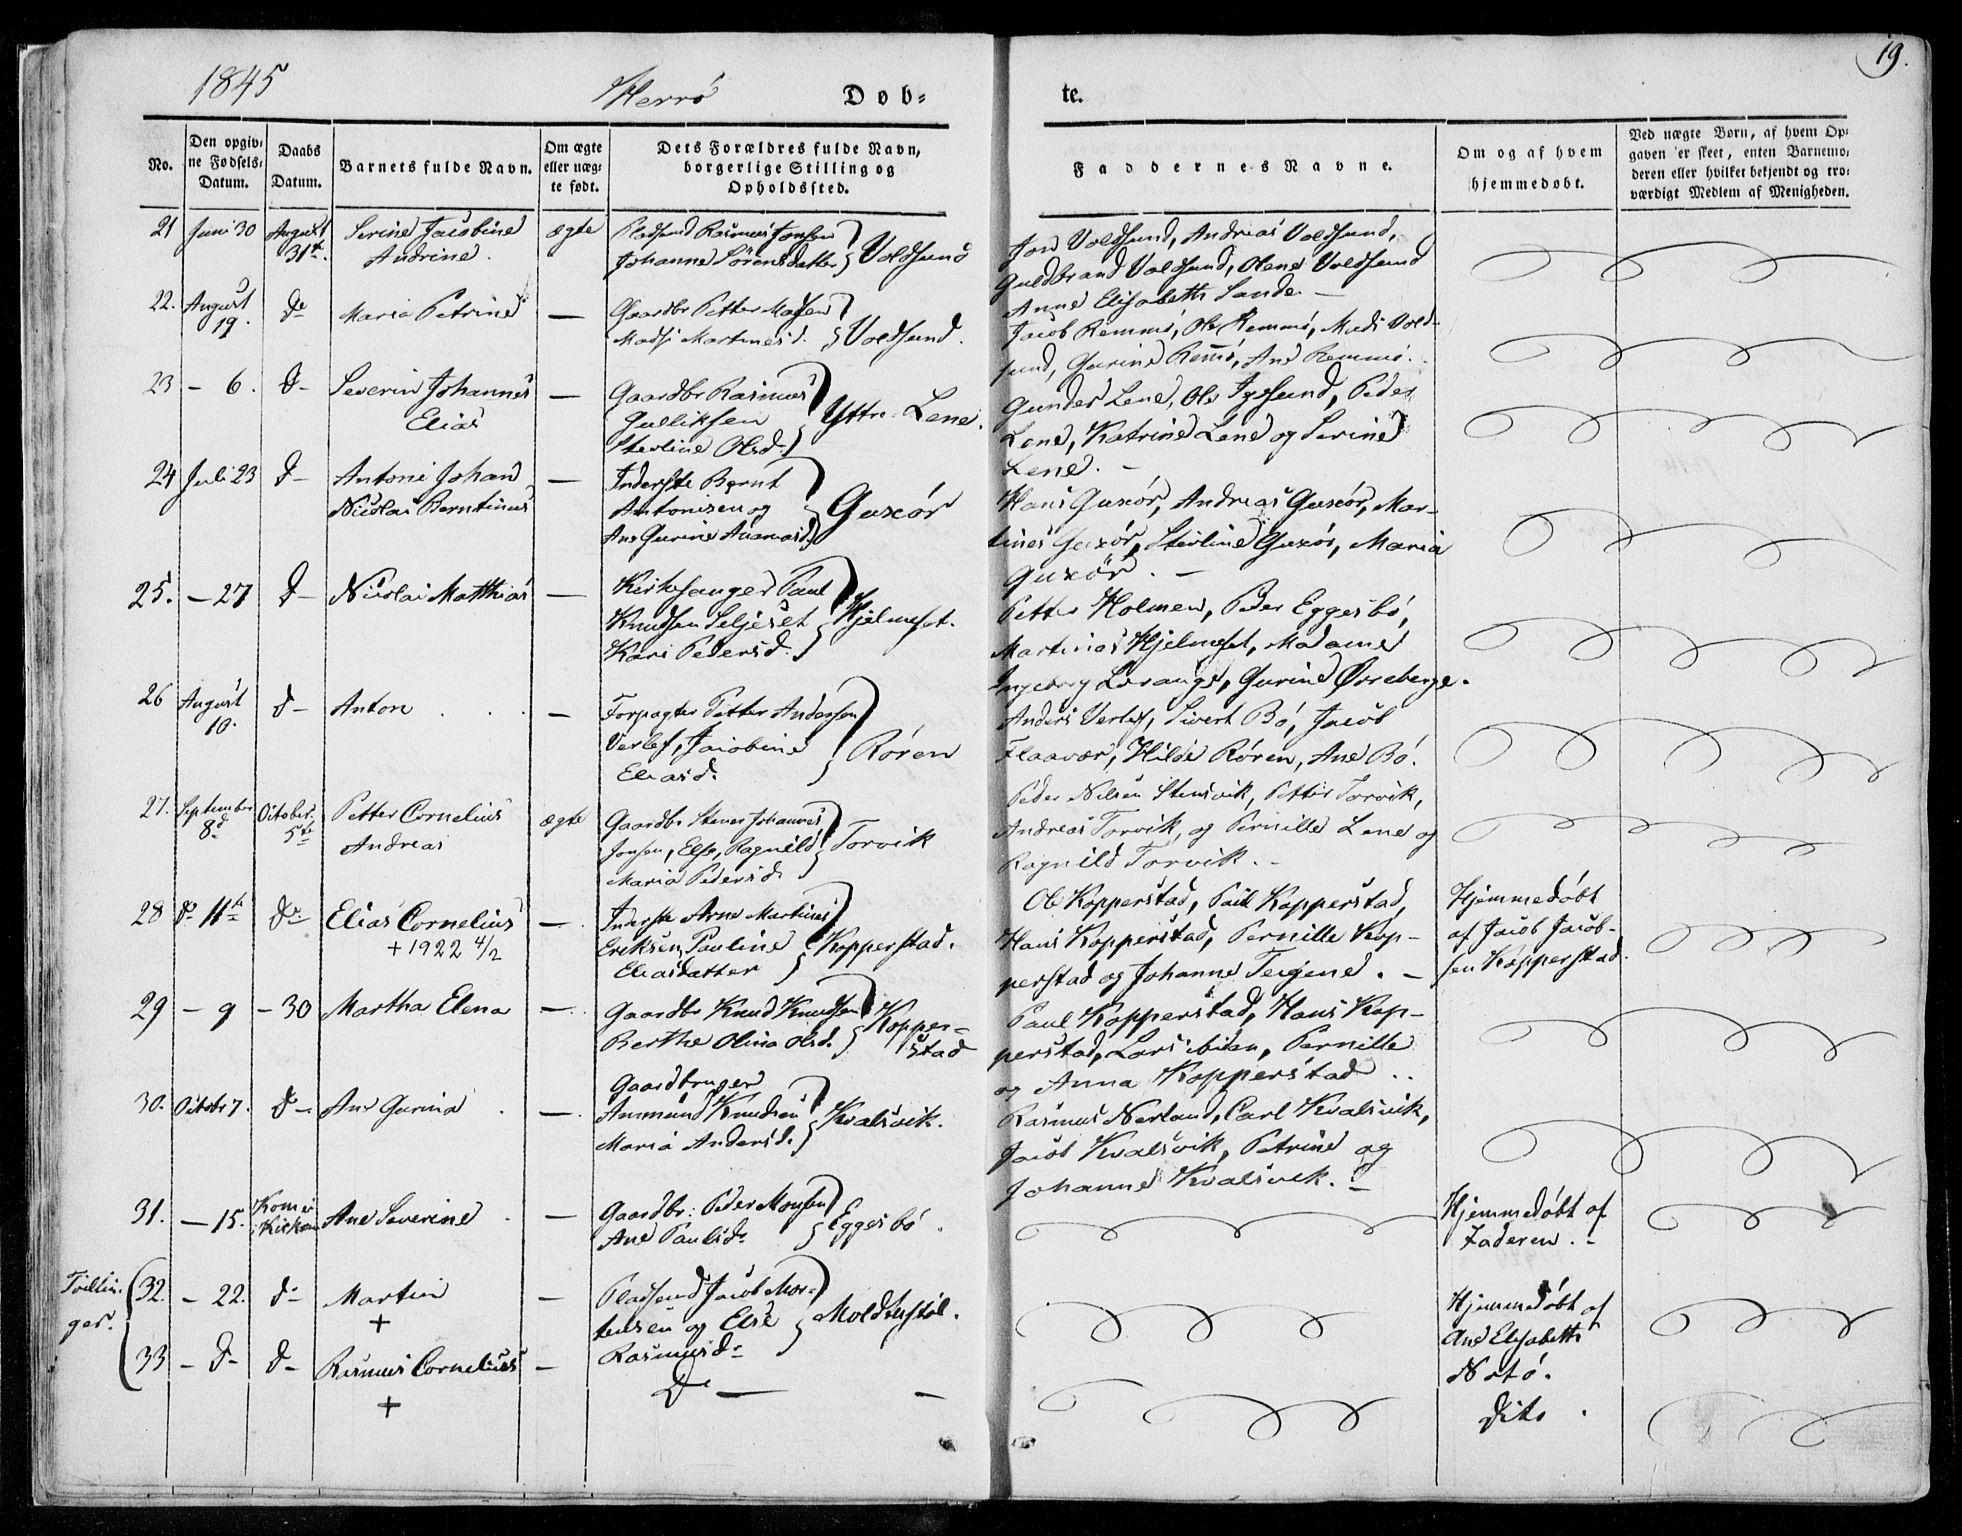 1845 Herrö Døb-
te.
19.
No.
Den opgiv-
ne Fødsels-
Datum.
Daabs
Datum.
Barnets fulde Navn.
Om ægte
eller uæg-
te født.
Dets Forældres fulde Navn,
borgerlige Stilling og
Opholdssted.
Faddernes Navne.
Om og af hvem
hjemmedøbt.
Ved uægte Børn, af hvem Op-
gaven er skeet, enten Barnemo-
deren eller hvilket bekjendt og tro-
værdigt Medlem af Menigheden.
21 Juni 30 August 31te Serine Jacobine
Andrine.
ægte
Pladsmd Rasmus Jonsen
Johanne Sörensdatter } Voldsund
Jon Voldsund, Andreas Voldsund,
Guldbrand Voldsund, Olene Voldsund
Anne Elisabeth Sande. —
22. August 19. do Maria Petrine —
Gaardbr Petter Madsen
Madsi Martinesd. } Voldsund.
Jacob Remmö, Ole Remmö, Mads Vold-
sund, Gurine Remö, Ane Remmö.
23 — 6. d— Severin Johannes
Elias
—
Gaardbr Rasmus
Gulliksen
Sterline Olsd. } Yttre Lene.
Gunder Lene, Ole Igesund, Peder
Lene, Katrine Lene og Serine
Lene. —
24 Juli 23 d— Antoni Johan
Nicolai Berntinus
—
Inderste Bernt
Antonisen og
Ane Gurine Ananiasd. } Guscör
Hans Guscör, Andreas Guscör, Mar-
tines Guscör, Sterline Guscör, Maria
Guscör. —
25. — 27 d— Nicolai Matthias —
Kirkesanger Paul
Knudsen Seljeset
Kari Pedersd. } Hjelmeset.
Petter Holmen, Peder Eggesbö,
Martinus Hjelmeset, Madame
Ingeborg Lorange, Gurine Ørreberge.
26 August 10. d— Anton —
Forpagter Petter Andersen
Verlef, Jacobine
Eliasd. } Rören
Anders Verlef, Sivert Bö, Jacob
Flaavær, Hilde Rören, Ane Bö.
27. September 8de October 5te Petter Cornelius
Andreas
ægte
Gaardbr Stener Johannes
Jonsen, Else, Ragnild
Maria Pedersd. } Torvik
Peder Nilsen Stensvik, Petter Torvik,
Andreas Torvik, og Pernille Lene og
Ragnild Torvik. —
28 do 11te do Elias Cornelius
+ 1922 4/2
—
Inderste Arne Martines
Eriksen, Pauline
Eliasdatter } Kopperstad.
Ole Kopperstad, Paul Kopperstad,
Hans Kopperstad, Pernille Kop-
perstad og Johanne Teigene. —
Hjemmedøbt
af Jacob Jacob-
sen Kopperstad.
29 — 9 — 30 Martha Elena —
Gaardbr Knud Knudsen
Berthe Olina Olsd. } Kopper-
stad
Paul Kopperstad, Hans Kop-
perstad, Lars ibiden, Pernille
og Anna Kopperstad..
30. Octobr 7. d— Ane Gurina —
Gaardbruger
Ammund Knudsen
Maria Andersd. } Kvalsvik.
Rasmus Nerland, Carl Kvalsvik,
Jacob Kvalsvik, Petrine og
Johanne Kvalsvik. —
31. — 15. Kom ei
i Kirken Ane Severine —
Gaardbr: Peder Monsen
Ane Paulsd. } Eggesbö.
Hjemmedøbt af
Faderen. —
Tvillin-
ger.
32. — 22. d— Martin
+
—
Pladsmd Jacob Mor-
tensen og Else
Rasmusd. } Moldtustöl.
Hjemmedøbt af
Ane Elisabeth
Notö.
33 — d— d— Rasmus Cornelius
+
—
D — —
Dito.